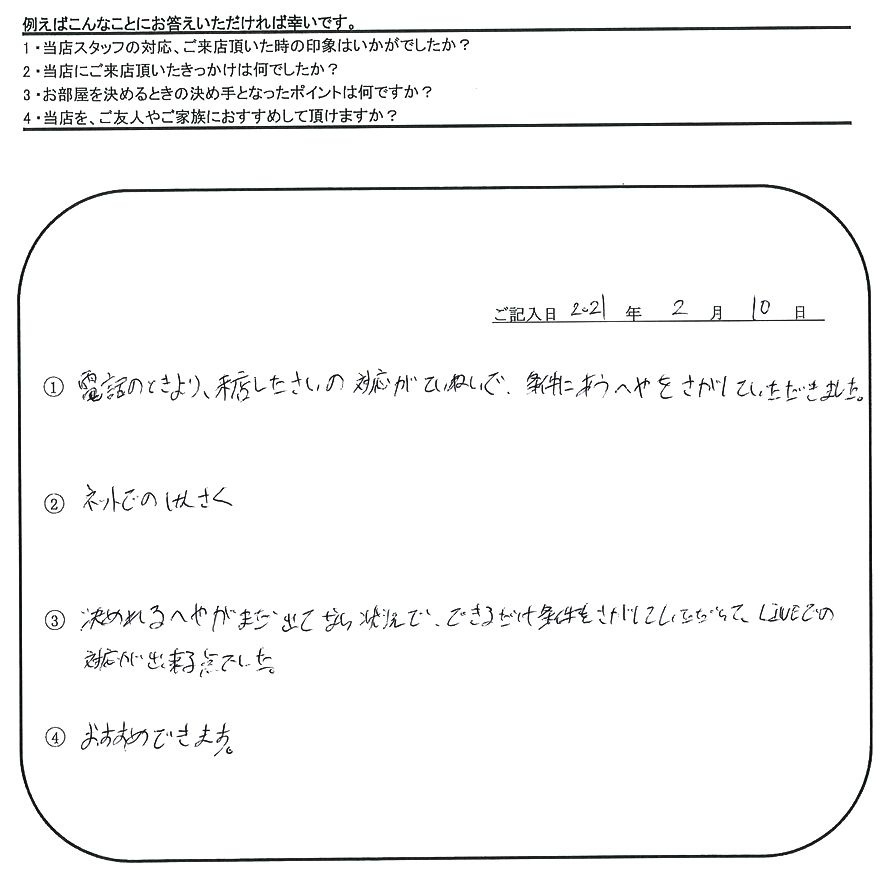 例えばこんなことにお答えいただければ幸いです。
1・当店スタッフの対応、ご来店頂いた時の印象はいかがでしたか？
2・当店にご来店頂いたきっかけは何でしたか？
3・お部屋を決めるときの決め手となったポイントは何ですか？
4・当店を、ご友人やご家族におすすめして頂けますか？
ご記入日 2021 年 2 月 10 日
① 電話のときより、来店したさいの対応がていねいで、条件にあうへやをさがしていただきました。
② ネットでのけんさく
③ 決めれるへやがまだ出てない状況で、できるだけ条件をさがしていただいて、LIVEでの
対応が出来る点でした。
④ おすすめできます。